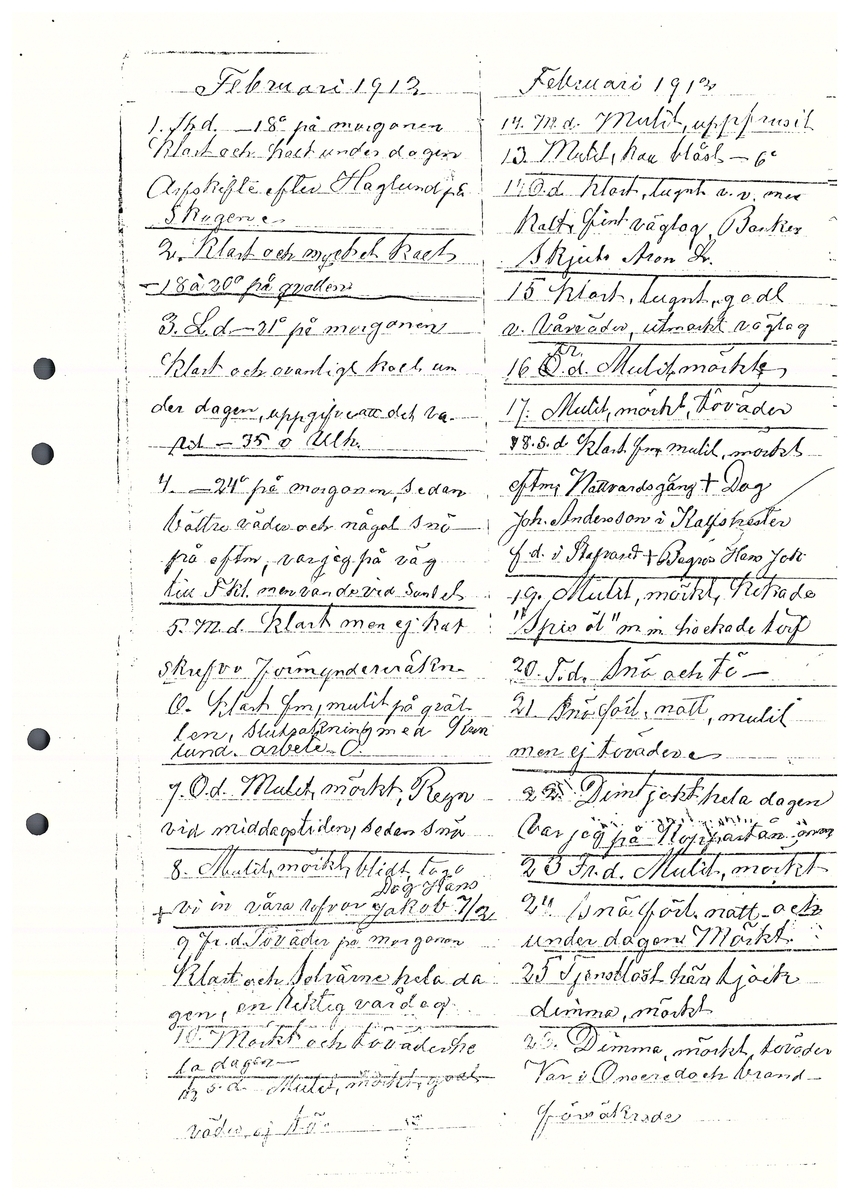 Februari 1913
1. Th.d. -18° på morgonen
Klart och kalt under dagen
Arfskifte efter Haglund på
Skogen
2. Klart och mycket kalt
-18 à 20° på qvällen
3. L.d -21° på morgonen
Klart och ovanligt kalt un
der dagen, uppgifve att det va-
rit - 35° Ulh.
4. -24° på morgonen, sedan
bättre väder och något snö
på eftm, var jeg på väg
till men vände vid
5. M.d. Klart men ej kat
skrefvo förmynderräkn-
6. Klart fm, mulit på qväl-
len, med
lund. arbete
7. O.d. Mulit, mörkt, Regn
vid middagstiden, sedan snö
8. Mulit, mörkt, blidt, togo
Dog Hans
+ vi in våra Jakob 7/2
9 Fr.d. Töväder på morgonen
Klart och Solvärme hela da
gen, en riktig vårdag
10. Mörkt och töväder he
la dagen
S.d. Mulit, mörkt, godt
väder, ej tö
Februari 1913
M.d. Mulit, uppfrusit
13 Mulit, kall blåst - 6°
O.d. Klart, lugnt v.v. men
kalt, fint väglag, Banker
Skjuts Aron
15 Klart, lugnt, godt
v. Vårväder, utmärkt väglag
16 Fr.d. Mulit, mörkt
17. Mulit, mörkt, töväder
18. S.d. Klart fm, mulit, mörkt
eftm, Nattvardsgång + Dog
Joh. Andersson i
f.d. i + Hans Joh
19. Mulit, mörkt,
"Spisöl" m m hackade torf
20. T.d. Snö och tö -
21. Snö förl. natt, mulit
men ej töväder
22. Dimtjokt hela dagen
Var jeg på
23 Fr.d. Mulit, mörkt
24 Snö förl. natt och
under dagen. Mörkt
25 Tjenstlöst här tjock
dimma, mörkt
Dimma, mörkt, töväder
Var i Onsered och brand-
försäkrade